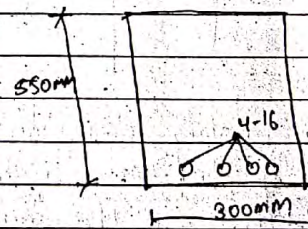 550mm
4-16
300mm